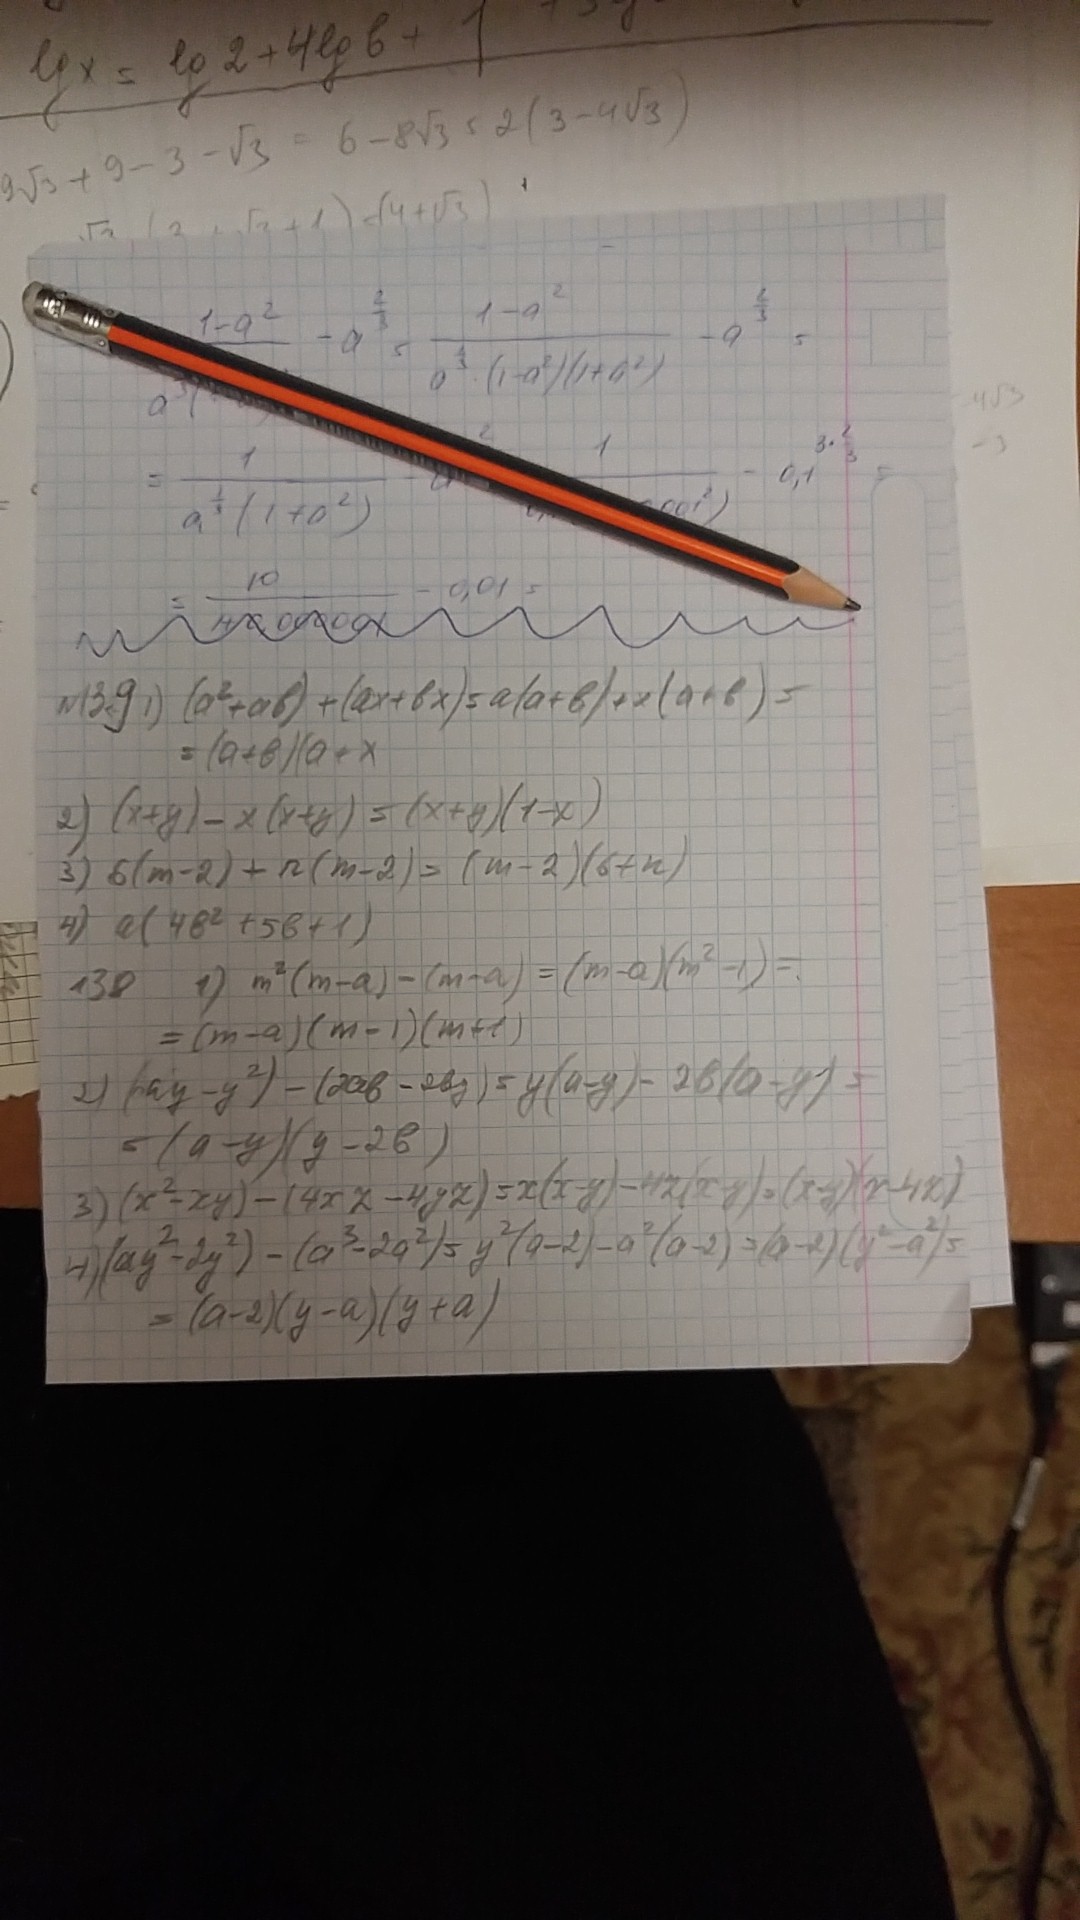 lg x = lg 2 + 4 lg b + 1
9√3 + 9 - 3 - √3 = 6 - 8√3 = 2(3 - 4√3)
(4+√3)
-4√3
-3
1-a² - a^(2/3) = (1-a²)/(a^(1/3)·(1-a²)(1+a²)) - a^(2/3) =
= 1/(a^(1/3)(1+a²)) - 1 - 0,1^(3·2/3) =
= 10 - 0,01 =
№139 1) (a²+ab)+(ax+bx)=a(a+b)+x(a+b)=
=(a+b)(a+x
2) (x+y)-x(x+y)=(x+y)(1-x)
3) 6(m-2)+n(m-2)=(m-2)(6+n)
4) a(4b²+5b+1)
138 1) m²(m-a)-(m-a)=(m-a)(m²-1)=
=(m-a)(m-1)(m+1)
2) (ay-y²)-(2ab-2by)=y(a-y)-2b(a-y)=
=(a-y)(y-2b)
3) (x²-xy)-(4xz-4yz)=x(x-y)-4z(x-y)=(x-y)(x-4z)
4) (ay²-2y²)-(a³-2a²)=y²(a-2)-a²(a-2)=(a-2)(y²-a²)=
=(a-2)(y-a)(y+a)